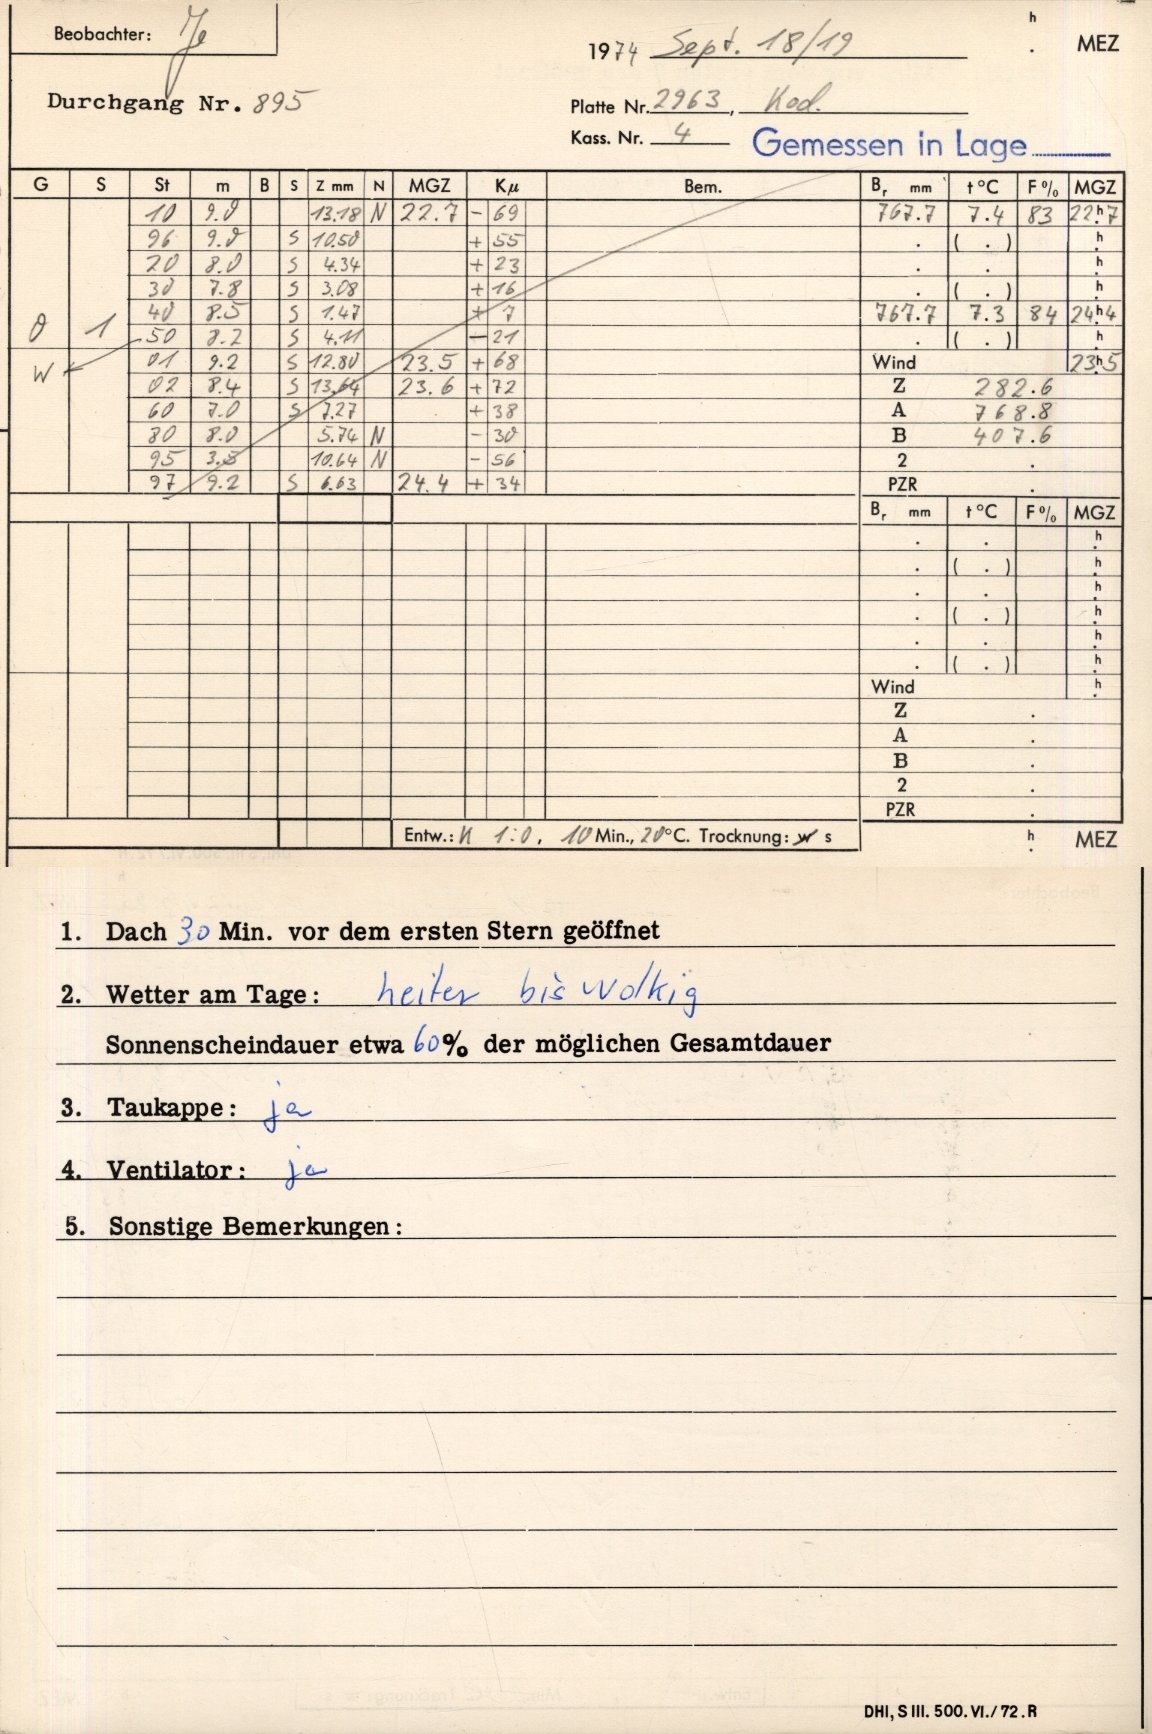 Beobachter: Je
h
1974 Sept. 18/19 . MEZ
Durchgang Nr. 895
Platte Nr. 2963, Kod.
Kass. Nr. 4 Gemessen in Lage
G S St m B S Z mm N MGZ Kμ Bem. Br mm t°C F% MGZ
10 9.0 13.18 N 22.7 - 69 767.7 7.4 83 22h.7
96 9.0 S 10.50 + 55 . ( . ) h.
20 8.0 S 4.34 + 23 . . h.
30 7.8 S 3.08 + 16 . ( . ) h.
0 1 40 8.5 S 1.47 + 7 767.7 7.3 84 24h.4
50 8.2 S 4.11 - 21 . ( . ) h.
W 01 9.2 S 12.80 23.5 + 68 Wind 23h.5
02 8.4 S 13.64 23.6 + 72 Z 282.6
60 7.0 S 7.27 + 38 A 768.8
80 8.0 5.74 N - 30 B 407.6
95 3.5 10.64 N - 56 2 .
97 9.2 S 6.63 24.4 + 34 PZR .
Br mm t°C F% MGZ
. . h.
. ( . ) h.
. . h.
. ( . ) h.
. . h.
. ( . ) h.
Wind h.
Z .
A .
B .
2 .
PZR .
Entw.: K 1:0, 10 Min., 20°C. Trocknung: w s h. MEZ
1. Dach 30 Min. vor dem ersten Stern geöffnet
2. Wetter am Tage: heiter bis wolkig
Sonnenscheindauer etwa 60% der möglichen Gesamtdauer
3. Taukappe: ja
4. Ventilator: ja
5. Sonstige Bemerkungen:
DHI, S III. 500. VI./72. R